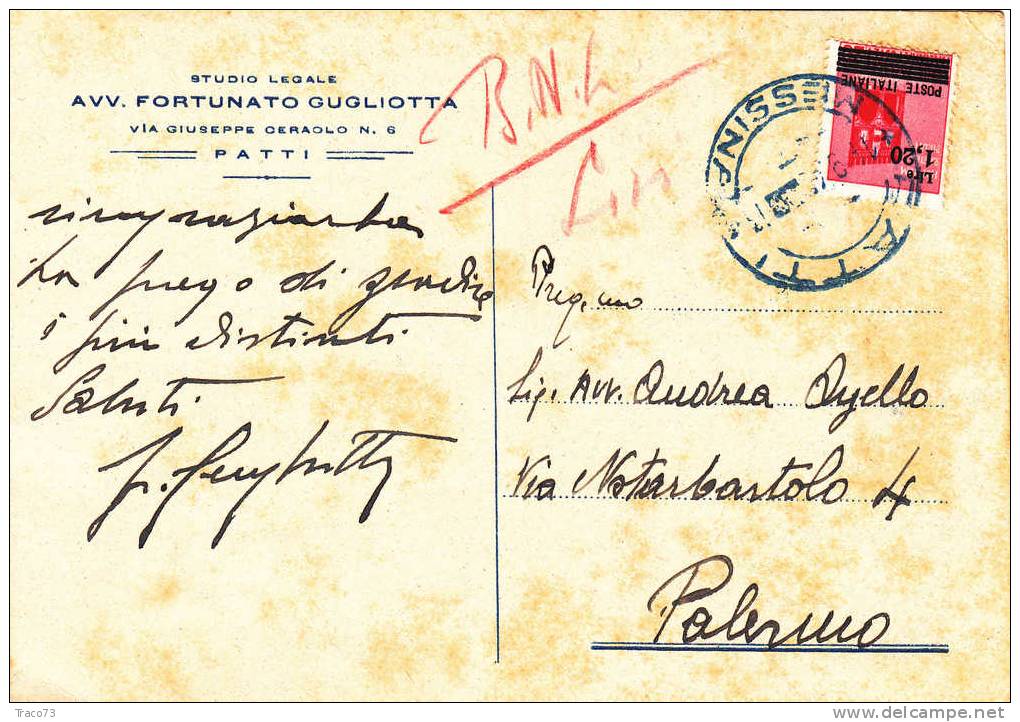 STUDIO LEGALE
AVV. FORTUNATO GUGLIOTTA
VIA GIUSEPPE CERAOLO N. 6
PATTI
B.N.L.
POSTE ITALIANE
Lire
1,20
PATTI
MESSINA
ringraziarla
La prego di gradire
i più distinti
Saluti.
Preg.mo
Sig. Avv. Andrea Ayello
Via Notarbartolo 4
Palermo
Traco73
www.delcampe.net